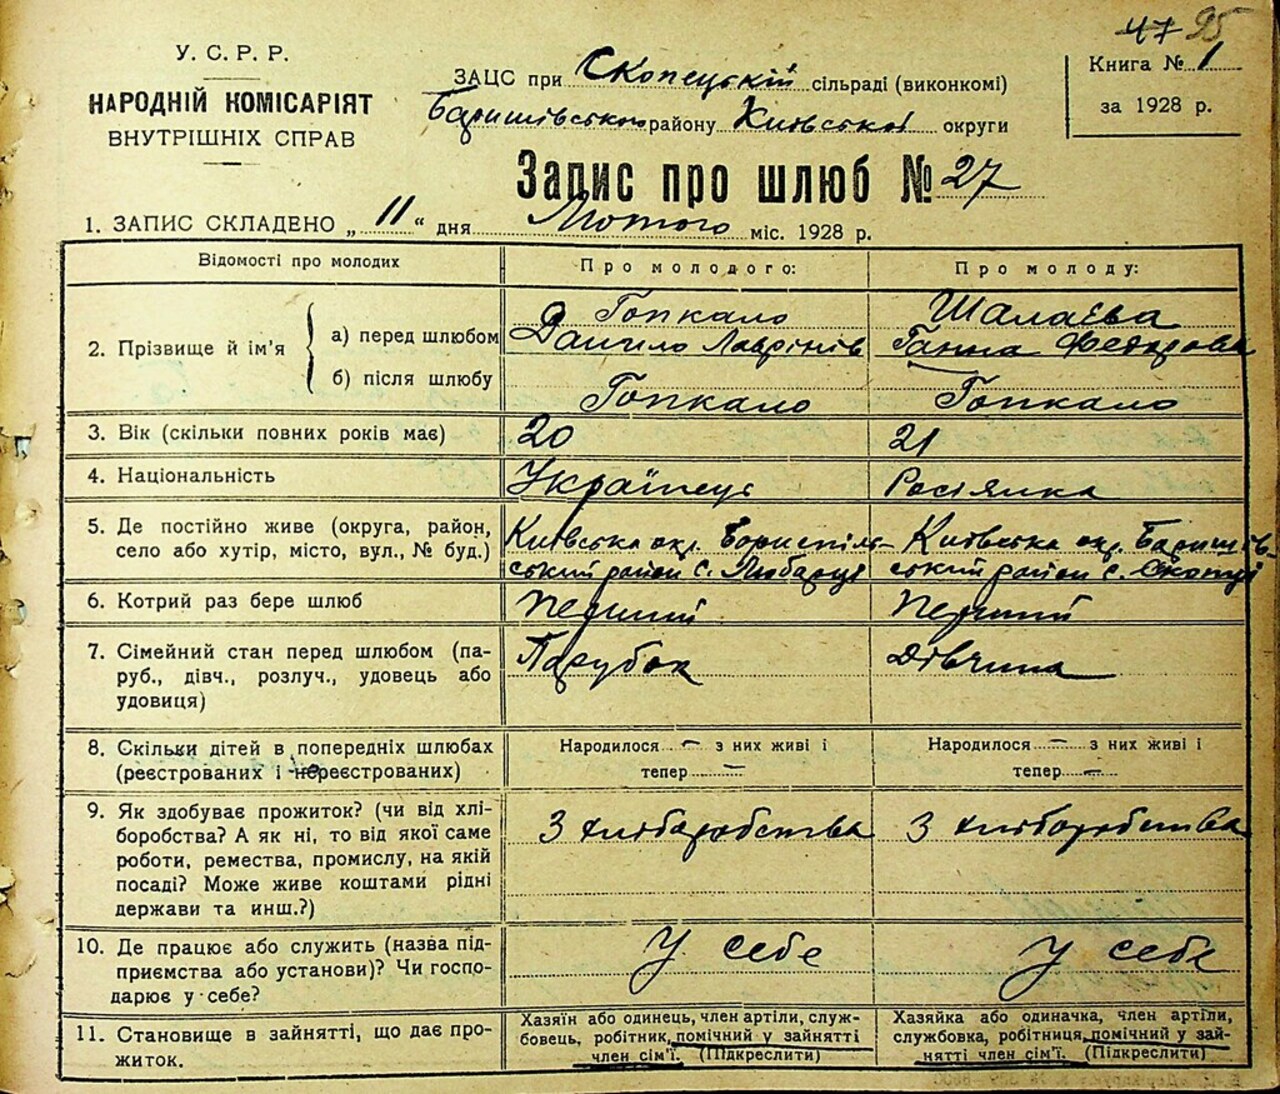 47 95
У. С. Р. Р.
НАРОДНІЙ КОМІСАРІЯТ
ВНУТРІШНІХ СПРАВ
ЗАЦС при Скопецькій сільраді (виконкомі)
Баришівського району Київської округи
Книга № 1
за 1928 р.
Запис про шлюб № 27
1. ЗАПИС СКЛАДЕНО „ 11 “ дня Лютого міс. 1928 р.
Відомості про молодих
Про молодого:
Про молоду:
2. Прізвище й ім'я
а) перед шлюбом
Гопкало
Данило Лаврінів
Шалаєва
Ганна Федорова
б) після шлюбу
Гопкало
Гопкало
3. Вік (скільки повних років має)
20
21
4. Національність
Українець
Росіянка
5. Де постійно живе (округа, район,
село або хутір, місто, вул., № буд.)
Київська окр. Бориспіль-
ський район с. Любарці
Київська окр. Баришів-
ський район с. Скопці
6. Котрий раз бере шлюб
Перший
Перший
7. Сімейний стан перед шлюбом (па-
руб., дівч., розлуч., удовець або
удовиця)
Парубок
Дівчина
8. Скільки дітей в попередніх шлюбах
(реєстрованих і нереєстрованих)
Народилося — з них живі і
тепер —
Народилося — з них живі і
тепер —
9. Як здобуває прожиток? (чи від хлі-
боробства? А як ні, то від якої саме
роботи, ремества, промислу, на якій
посаді? Може живе коштами рідні
держави та инш.?)
З хліборобства
З хліборобства
10. Де працює або служить (назва під-
приємства або установи)? Чи госпо-
дарює у себе?
У себе
У себе
11. Становище в зайнятті, що дає про-
житок.
Хазяїн або одинець, член артіли, служ-
бовець, робітник, помічний у зайнятті
член сім'ї. (Підкреслити)
Хазяйка або одиначка, член артіли,
службовка, робітниця, помічний у зай-
нятті член сім'ї. (Підкреслити)